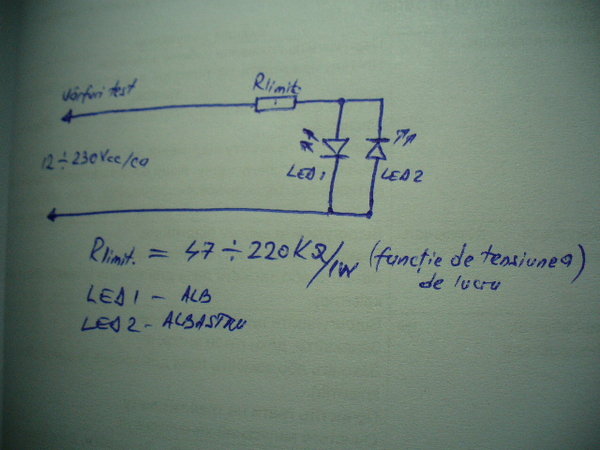 Vârfuri test
Rlimit.
12÷230Vcc/ca
LED1
LED2
Rlimit. = 47÷220KΩ/1W (funcție de tensiunea)
de lucru
LED1 - ALB
LED2 - ALBASTRU